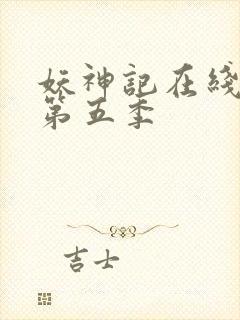 妖神記在綫
第五季
吉士